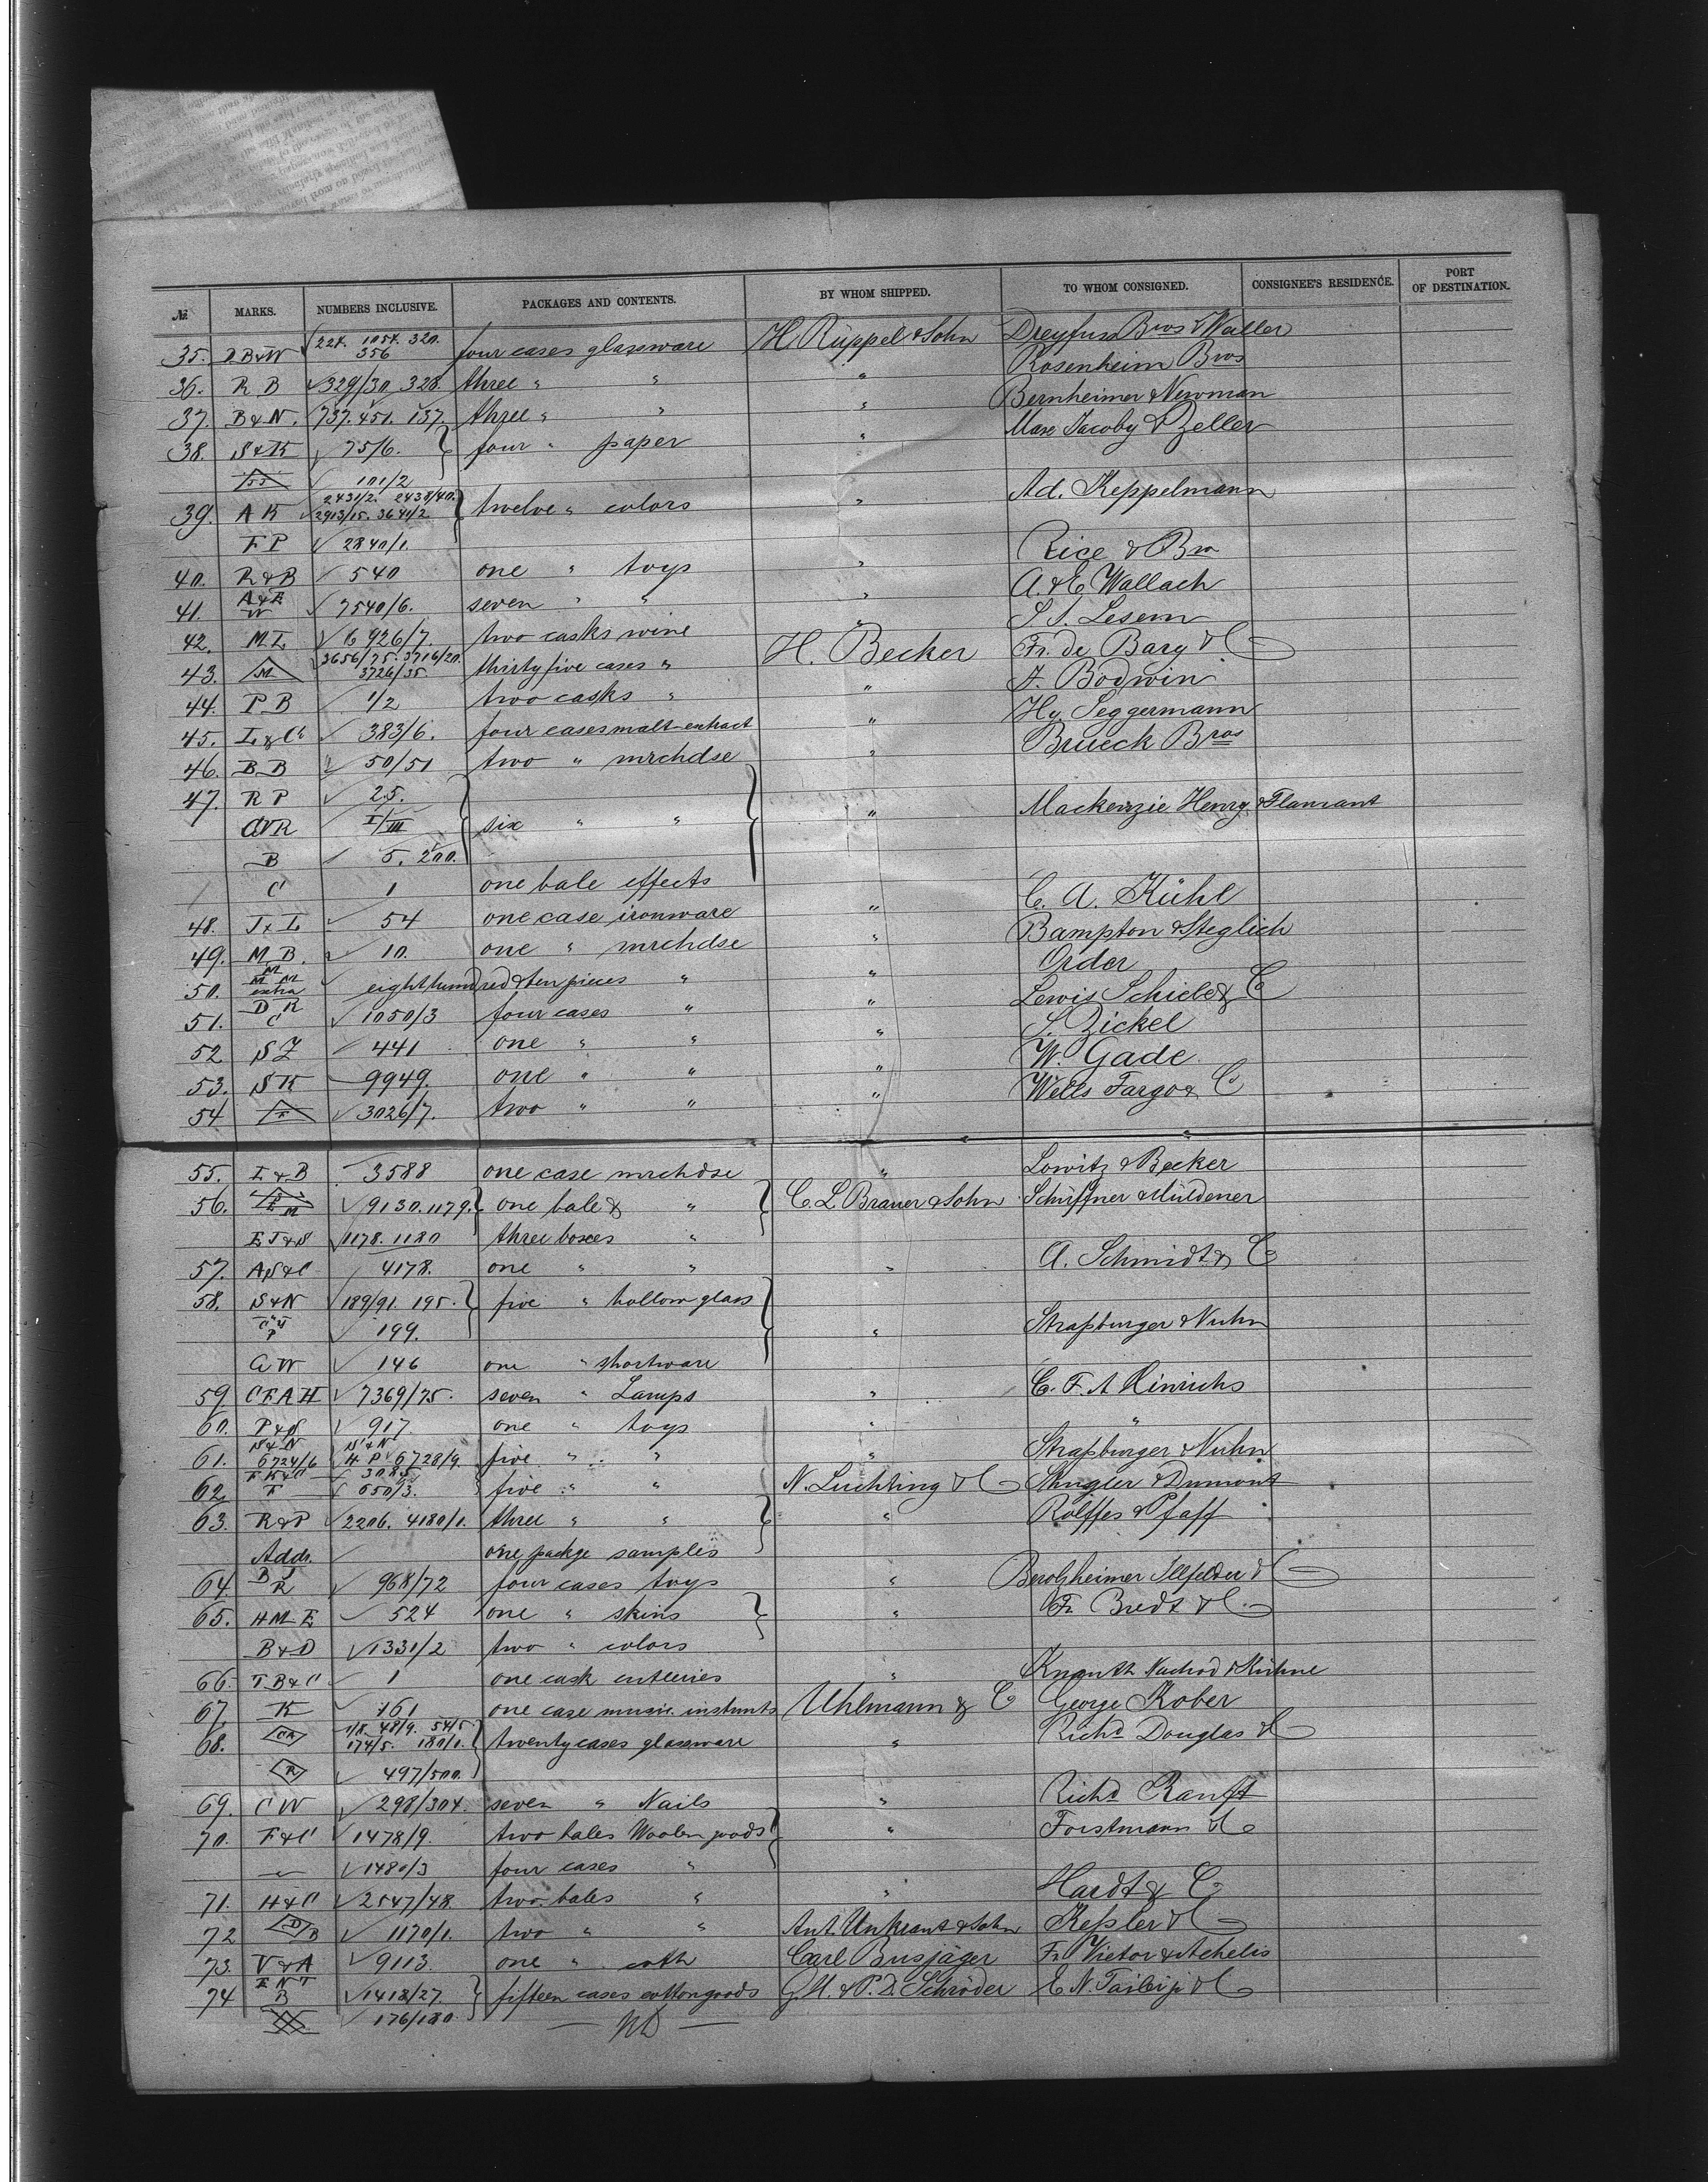 № MARKS. NUMBERS INCLUSIVE. PACKAGES AND CONTENTS. BY WHOM SHIPPED. TO WHOM CONSIGNED. CONSIGNEE'S RESIDENCE. PORT OF DESTINATION.
35. DB&W 224. 1054. 320. 356 four cases glassware H. Rüppel & Sohn Dreyfus Bros & Waller
36. R B 329/30 328. three " " " Rosenheim Bros
37. B & N. 737. 451. 137. three " " " Bernheimer & Newman
38. S & K 75/6. four " paper " Max Jacoby & Zeller
101/2
39. A K 2431/2. 2438/40. 2913/15. 3641/2. twelve " colors " Ad. Keppelmann
F P 2840/1.
40. R & B 540 one " toys " Rice & Bro
41. A & E W 7540/6. seven " " " A. & E. Wallach
42. M L 6926/7. two casks wine " S. S. Lesem
43. M 3656/75. 3716/20. 3726/35 thirty five cases " H. Becker Fr. de Bary & C
44. P B 1/2 two casks " " F. Bodwin
45. L & Co 383/6. four cases malt-extract " Hy. Seggermann
46. B B 50/51 two " mrchdse " Brueck Bros
47. R P 25.
I/III six " " " Mackenzie Henry & Flamant
B 5. 200.
C 1 one bale effects
48. J x L 54 one case ironware " C. A. Kühl
49. M B. 10. one " mrchdse " Bampton & Steglich
50. M M M extra eighthundred & ten pieces " " Order
51. D R C 1050/3 four cases " " Lewis Schiele & C
52 S Z 441 one " " " S. Zickel
53. S K 9949. one " " " W. Gade
54 F 3026/7. two " " " Wells Fargo & C
55. L & B 3588 one case mrchdse " Lowitz & Becker
56. 9130. 1179. one bale & " C. L. Brauer & Sohn Schüffner & Müldener
E J & S 1178. 1180 three boxes "
57. A S & C 4178. one " " " A. Schmidt & C
58. S & N 189/91. 195. five " hollow glass
199. " Straßburger & Nuhn
G W 146 one " shortware
59 C F A H 7369/75. seven " Lamps " C. F. A. Hinrichs
60. P & S 917. one " toys " "
61. S & N 6724/6 S & N H P 6728/9. five " " " Straßburger & Nuhn
62. F K & C F 3085 650/3. five " " N. Luchting & C Stugler & Dumont
63. R & P 2206. 4180/1. three " " " Rölffes & Pfaff
Addr. one packge samples
64. B J R 968/72 four cases toys " Berolzheimer Illfelder & C
65. H M E 524 one " skins " Fr. Bredt & C
B & D 1331/2 two " colors
66. T B & C 1 one cask cutleries " Knauth Nachod & Kühne
67. K 161 one case music. instrmts Uhlmann & C George Kober
68. CR 1/8. 48/9. 54/5. 174/5. 180/1. twenty cases glassware " Richd Douglas & C
R 497/500.
69. C W 298/304. seven " Nails " Richd Ranft
70. F & C 1478/9. two bales Woolen goods " Forstmann & C
1480/3 four cases "
71. H & C 2547/48. two bales " " Hardt & C
72 D B 1170/1. two " " Ant. Unkraut & Sohn Keßler & C
73. V & A 9113. one " cloth Carl Busjäger Fr. Vietor & Achelis
74 E N T B 1418/27. fifteen cases cottongoods G. H. & P. D. Schröder E. N. Tailer jr & C
176/180.